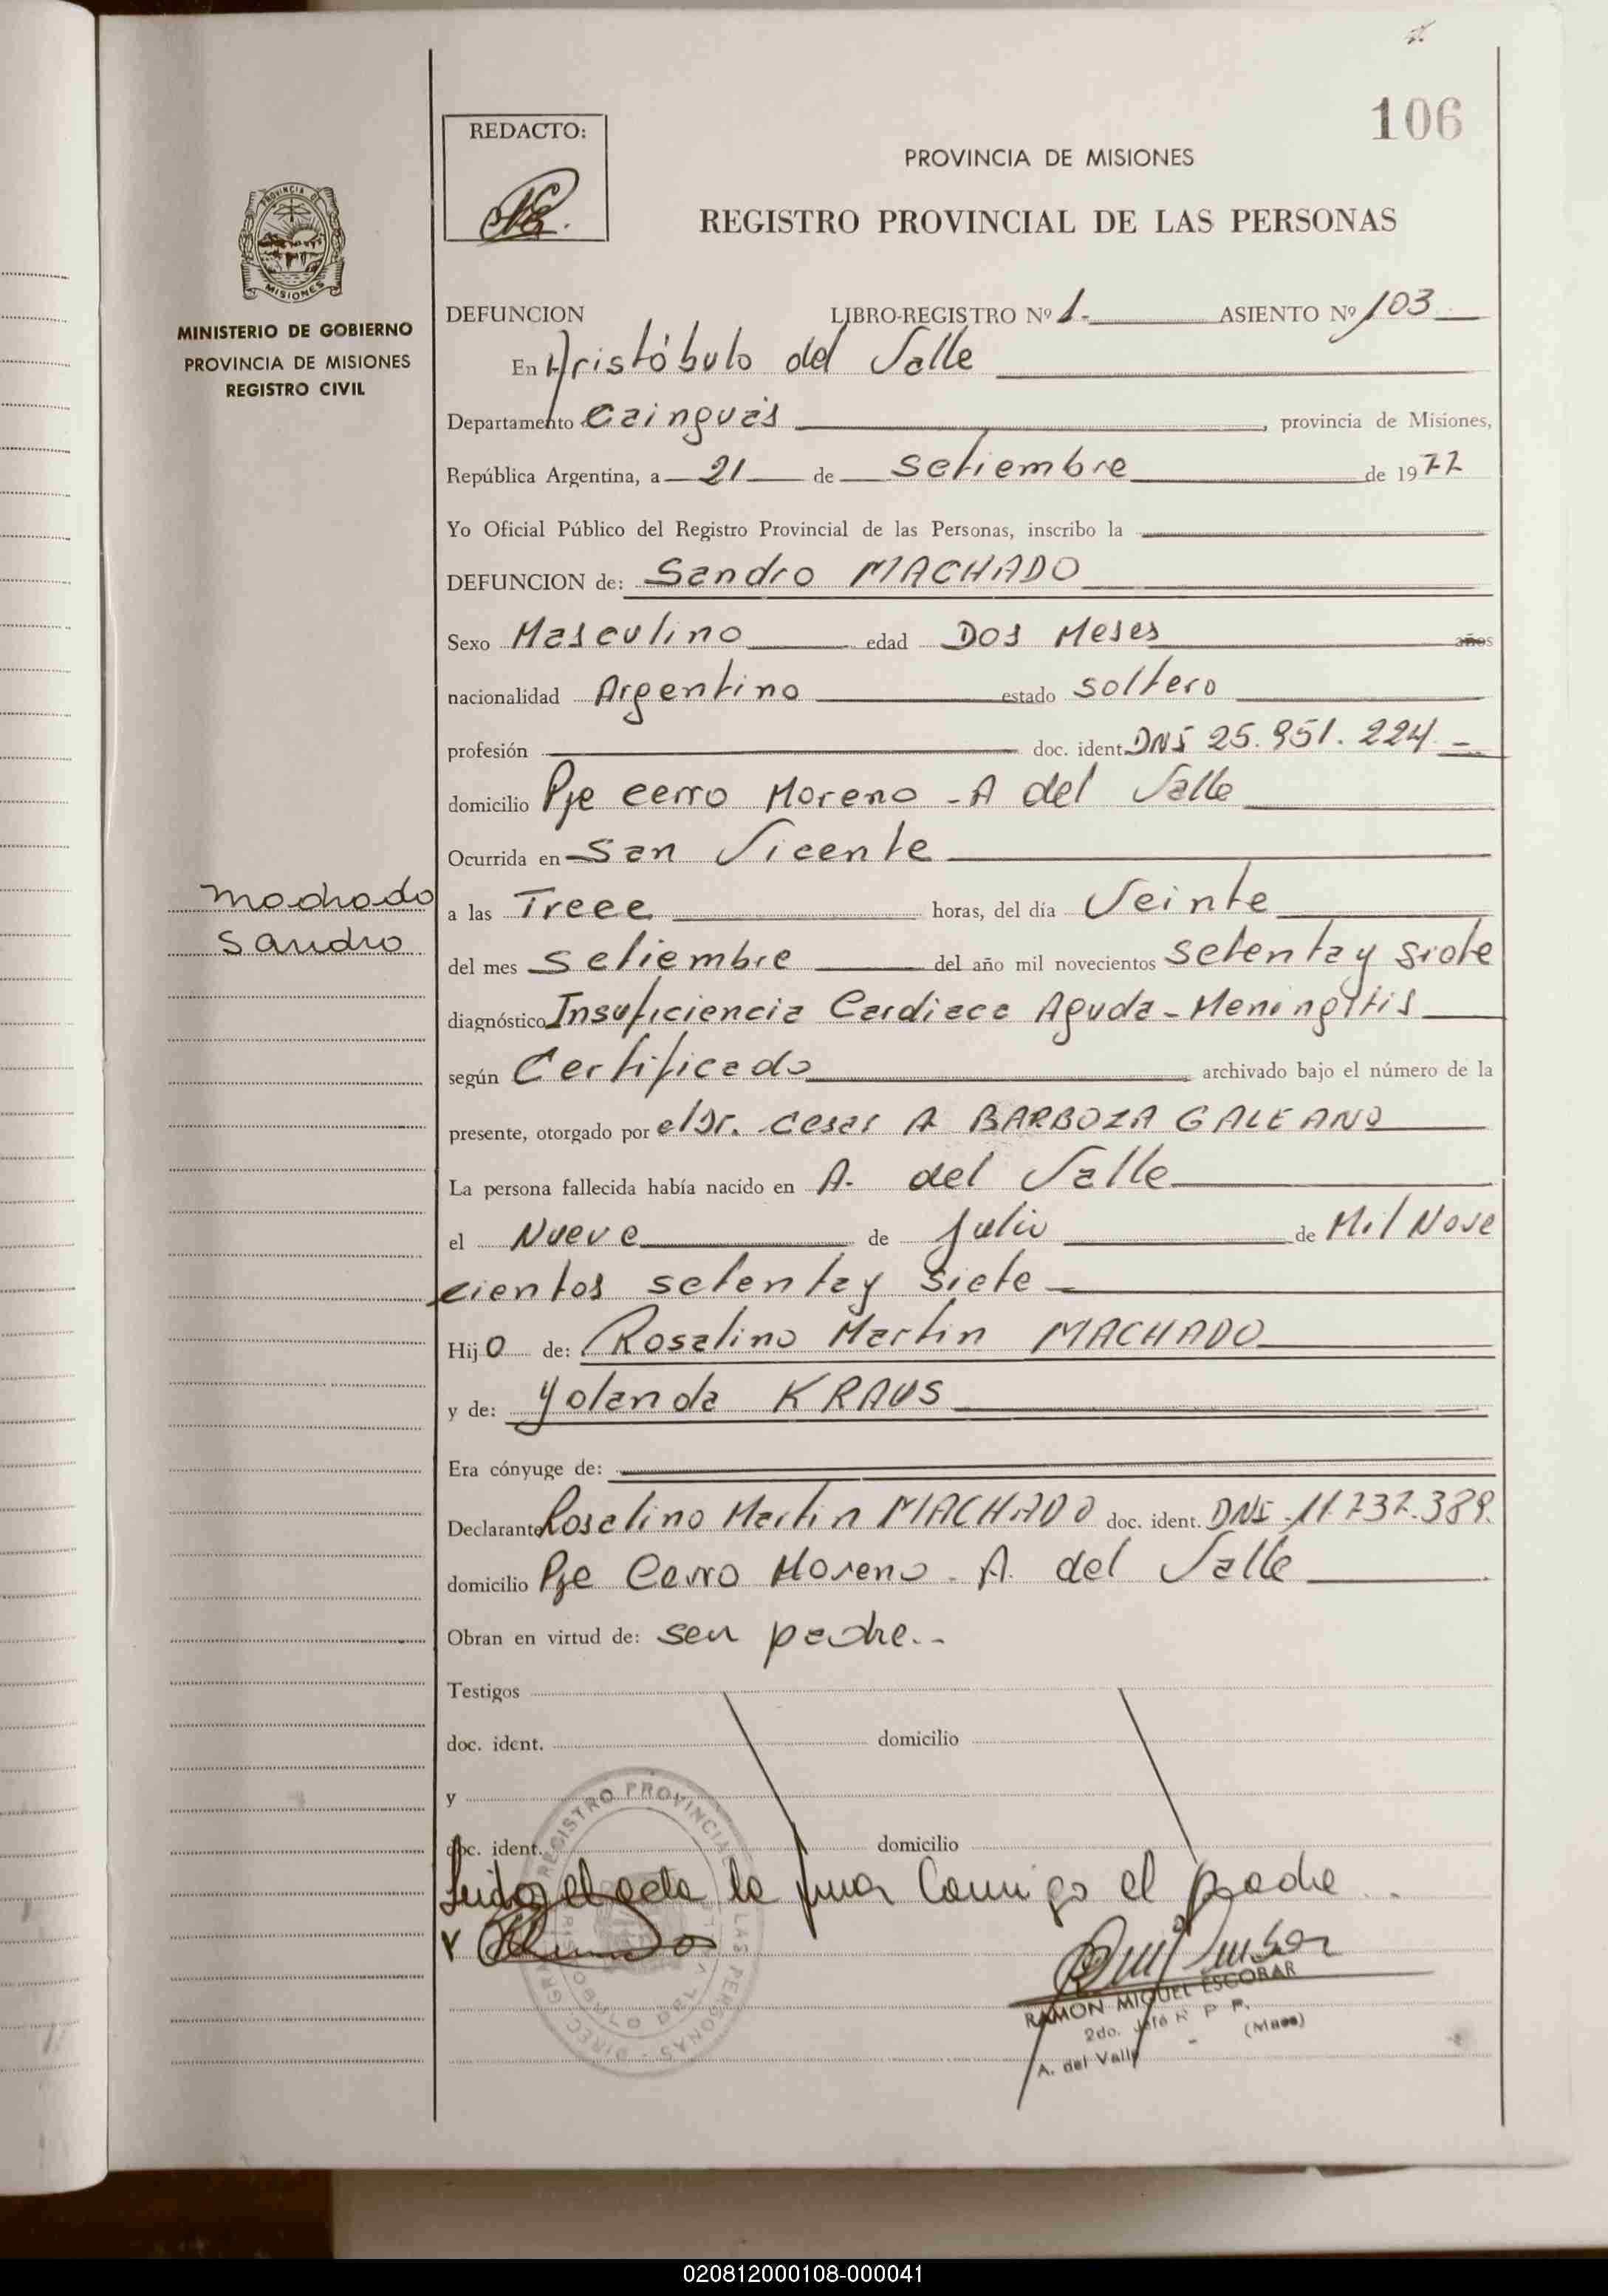 106
REDACTO:
PROVINCIA DE MISIONES
REGISTRO PROVINCIAL DE LAS PERSONAS
PROVINCIA DE
MISIONES
MINISTERIO DE GOBIERNO
PROVINCIA DE MISIONES
REGISTRO CIVIL
DEFUNCION LIBRO-REGISTRO Nº 1.- ASIENTO Nº 103
En Aristóbulo del Valle
Departamento Cainguás, provincia de Misiones,
República Argentina, a 21 de setiembre de 1977
Yo Oficial Público del Registro Provincial de las Personas, inscribo la
DEFUNCION de: Sandro MACHADO
Sexo Masculino edad Dos Meses años
nacionalidad Argentino estado soltero
profesión doc. ident. DNI 25.951.224.-
domicilio Pje cerro Moreno - A del Valle
Ocurrida en San Vicente
Machado
Sandro
a las Trece horas, del día Veinte
del mes setiembre del año mil novecientos setenta y siete
diagnóstico Insuficiencia Cardiaca Aguda - Meningitis
según Certificado archivado bajo el número de la
presente, otorgado por el Dr. Cesar A BARBOZA GALEANO
La persona fallecida había nacido en A. del Valle
el Nueve de Julio de Mil Nove
cientos setenta y siete
Hijo de: Rosalino Martin MACHADO
y de: Yolanda KRAUS
Era cónyuge de:
Declarante Rosalino Martin MACHADO doc. ident. DNI 11.737.389.
domicilio Pje Cerro Moreno - A. del Valle
Obran en virtud de: seu padre.-
Testigos
doc. ident. domicilio
y
doc. ident. domicilio
Leida el acta la firma Conmigo el padre
RAMON MIGUEL ESCOBAR
2do. Jefe R P P.
A. del Valle - (Mnes)
020812000108-000041